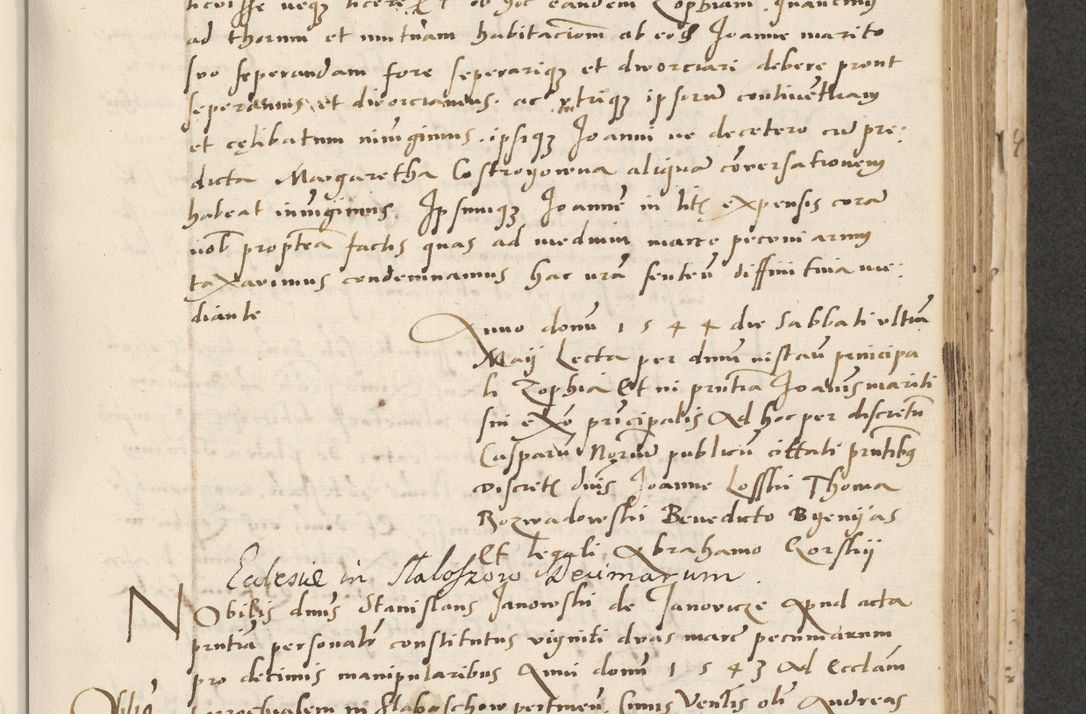 ad thorum et mutuam habitacionem ab eodem Joanne marito
suo seperandam fore seperariq et divorciari debere prout
seperamus et divorciamus. ac utriq ipsorum continentiam
et cęlibatum iniungimus. ipsiq Joanni ne decetero cu pre:
dicta Margaretha Costroyowna aliqua conversationem
habeat iniungimus. Ipsumq Joannem in litis expensis cora
nobis propterea factis quas ad medium marce pecuniarum
taxavimus condemnamus hac nra senten diffinitiva me:
diante
Anno domi 1544 die Sabbati ultima
Maij Lecta per dnum in scau principa
li Zophia Et in prntia Joannis mariti
sui ex o principalis Ad hoc per discretum
Casparum Norium publicum cittati prntibus
Discretis dnis Joanne Losskii Thoma
Rozwadowskii Benedicto Byenijas
Et legali Abrahamo Gorskij
Ecclesie in Slaboszow Decimarum.
Nobilis dnus Stanislaus Janowskii de Janovicze Apud acta
prntia personalr constitutus viginti duas marc pecuniarum
pro decimis manipularibus Anni domi 1543 Ad Ecclam
parochialem in Slaboschow pertinen. Cuius Venlis olim Andreas